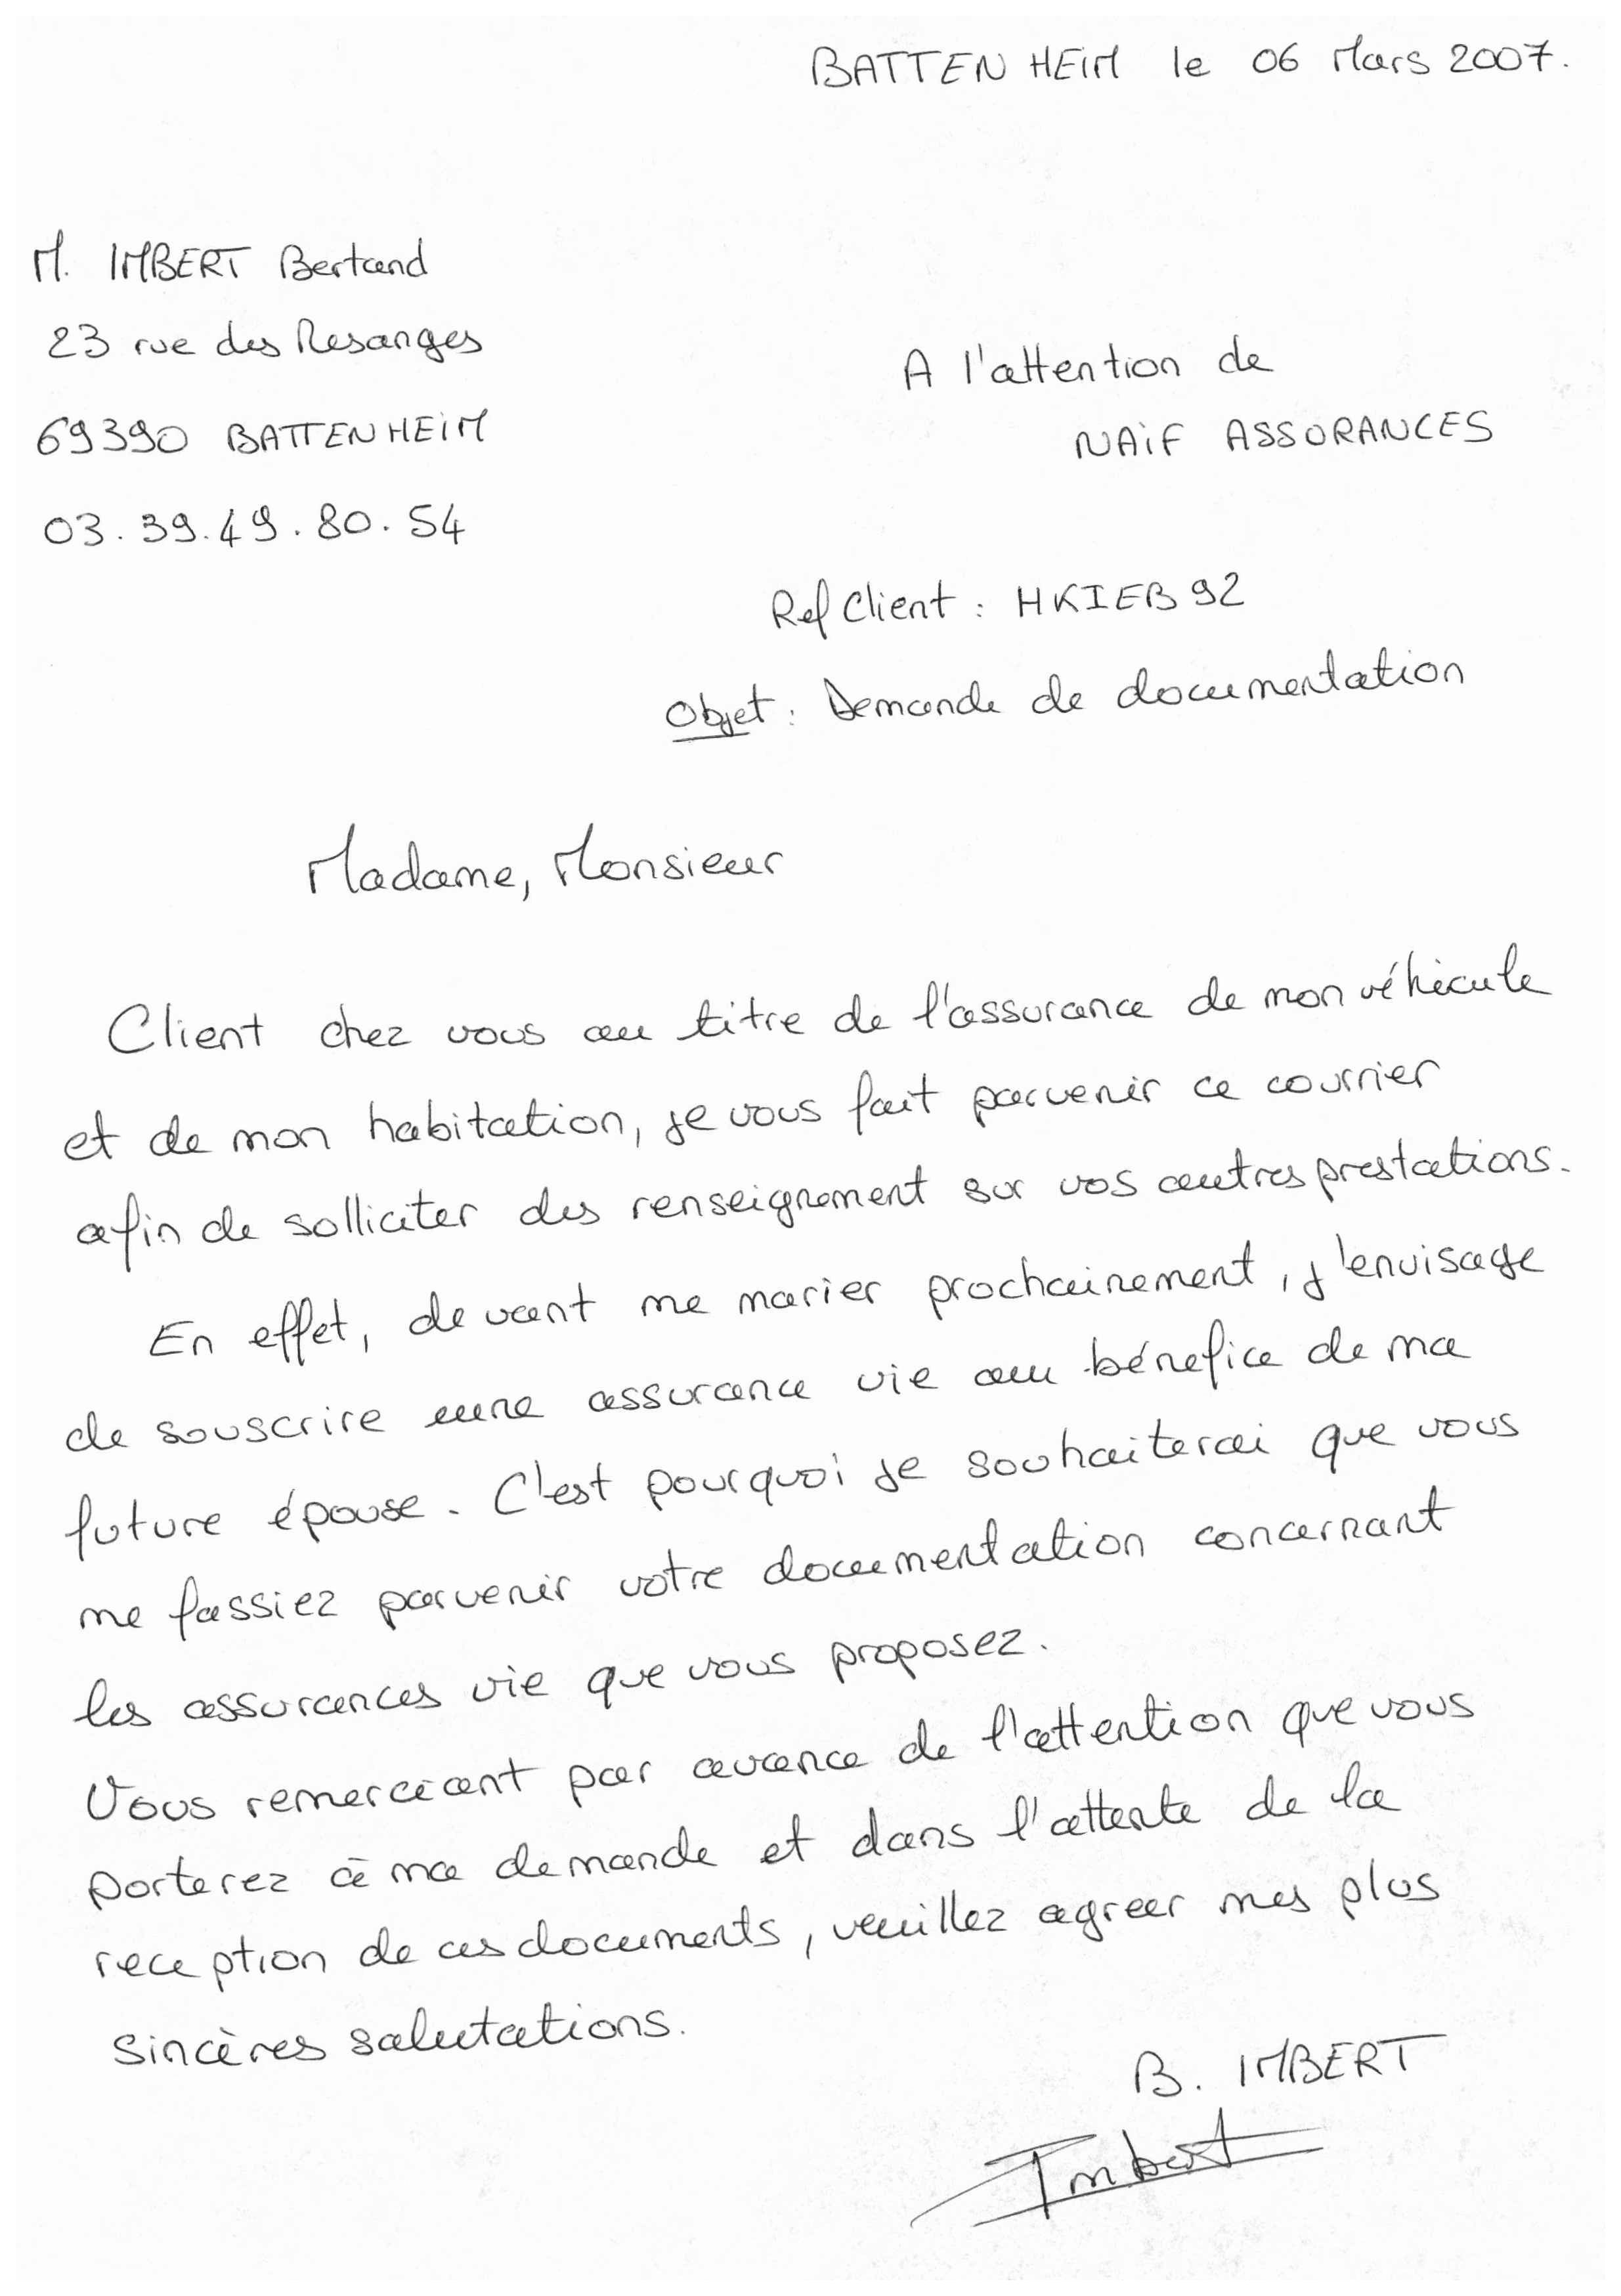 BATTENHEIM le 06 Mars 2007.
M. IMBERT Bertrand
23 rue des Mesanges
69390 BATTENHEIM
03.39.49.80.54
A l'attention de
NAIF ASSURANCES
Ref Client : HKIEB92
Objet : Demande de documentation
Madame, Monsieur
Client chez vous au titre de l'assurance de mon véhicule
et de mon habitation, je vous fait parvenir ce courrier
afin de solliciter des renseignement sur vos autres prestations.
En effet, devant me marier prochainement, j'envisage
de souscrire une assurance vie au bénefice de ma
future épouse. C'est pourquoi je souhaiterai que vous
me fassiez parvenir votre documentation concernant
les assurances vie que vous proposez.
Vous remerciant par avance de l'attention que vous
porterez à ma demande et dans l'attente de la
reception de ces documents, veuillez agreer mes plus
sincères salutations.
B. IMBERT
Imbert